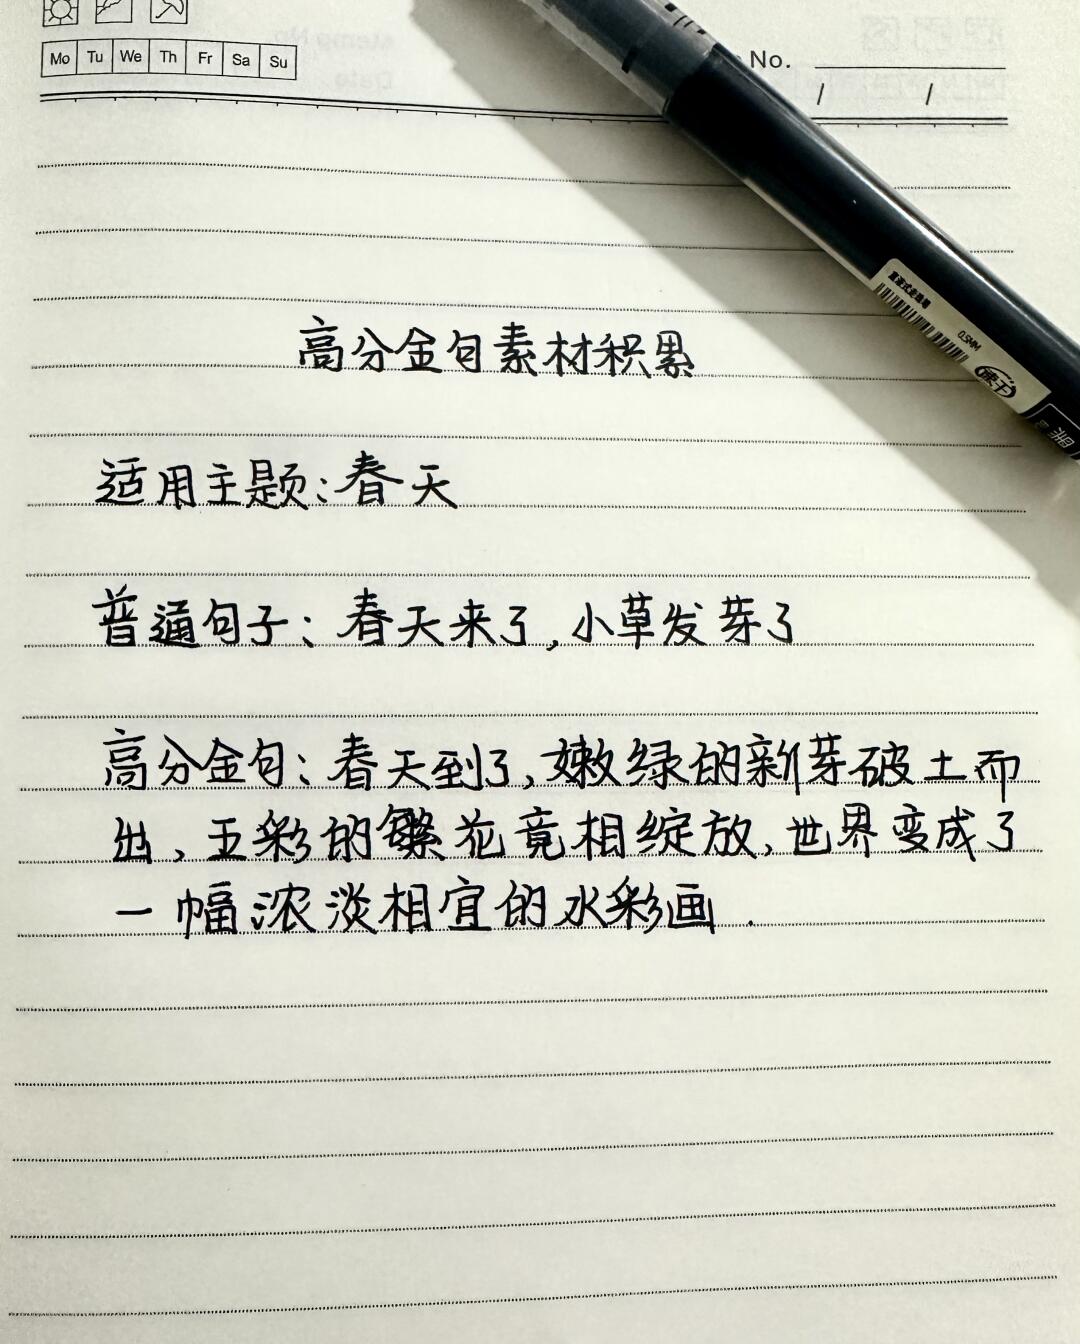 Mo Tu We Th Fr Sa Su
No.
/ /
直液式走珠笔
0.5MM
速干
高分金句素材积累
适用主题:春天
普通句子:春天来了,小草发芽了
高分金句:春天到了,嫩绿的新芽破土而
出,五彩的繁花竟相绽放,世界变成了
一幅浓淡相宜的水彩画.